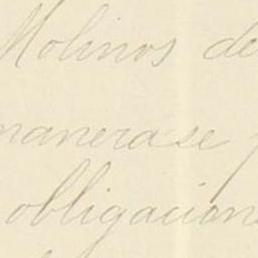 Molinos de
manera se
obligacion